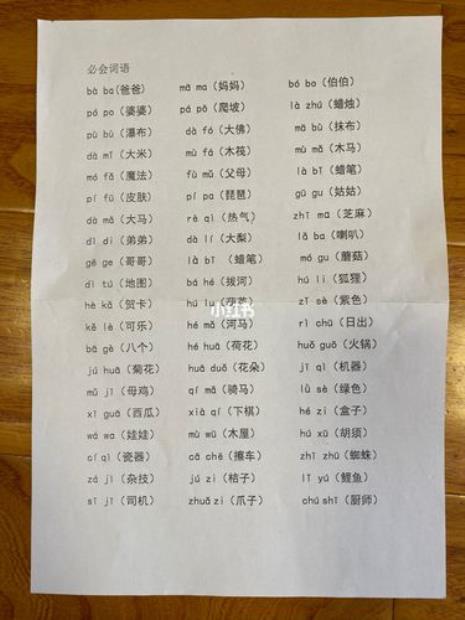 必会词语
bà ba(爸爸) mā ma（妈妈） bó bo（伯伯）
pó po（婆婆） pá pō（爬坡） là zhú（蜡烛）
pù bù（瀑布） dà fó（大佛） mā bù（抹布）
dà mǐ（大米） mù fá（木筏） mù mǎ（木马）
mó fǎ（魔法） fù mǔ（父母） là bǐ（蜡笔）
pí fū（皮肤） pí pa（琵琶） gū gu（姑姑）
dà mǎ（大马） rè qì（热气） zhī ma（芝麻）
dì di（弟弟） dà lí（大梨） lǎ ba（喇叭）
gē ge（哥哥） là bǐ （蜡笔） mó gu（蘑菇）
dì tú（地图） bá hé（拔河） hú li（狐狸）
hè kǎ（贺卡） hú lu（葫芦） zǐ sè（紫色）
kě lè（可乐） hé mǎ（河马） rì chū（日出）
bā gè（八个） hé huā（荷花） huǒ guō（火锅）
jú huā（菊花） huā duǒ（花朵） jī qì（机器）
mǔ jī（母鸡） qí mǎ（骑马） lǜ sè（绿色）
xī guā（西瓜） xià qí（下棋） hé zi（盒子）
wá wa（娃娃） mù wū（木屋） hú xū（胡须）
cí qì（瓷器） cā chē（擦车） zhī zhū（蜘蛛）
zá jì（杂技） jú zi（桔子） lǐ yú（鲤鱼）
sī jī（司机） zhuǎ zi（爪子） chú shī（厨师）
小红书